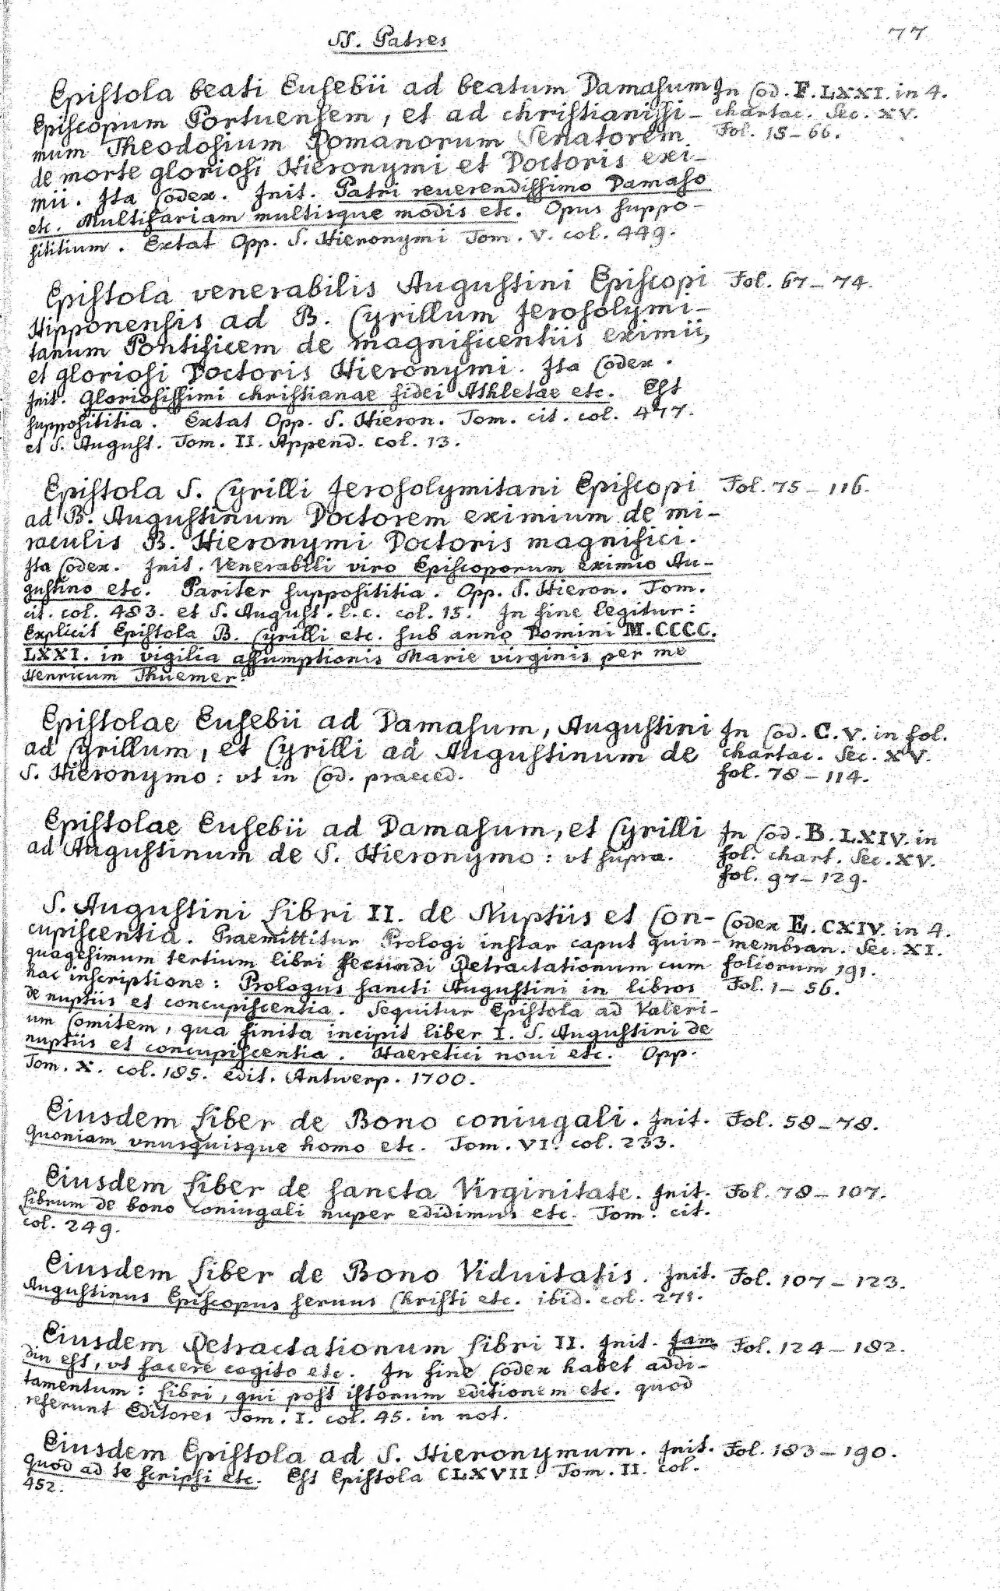 SS. Patres
77
Epistola beati Eusebii ad beatum Damasum
Episcopum Portuensem, et ad christianissi-
mum Theodosium Romanorum Senatorem
de morte gloriosi Hieronymi et Doctoris exi-
mii. Ita Codex. Init. Patri reverendissimo Damaso
etc. Multifariam multisque modis etc. Opus suppo-
sititium. Extat Opp. S. Hieronymi Tom. V. col. 449.
In Cod. F. LXXI. in 4.
chartac. Sec. XV.
Fol. 15-66.
Epistola venerabilis Augustini Episcopi
Hipponensis ad B. Cyrillum Jerosolymi-
tanum Pontificem de magnificentiis eximii,
et gloriosi Doctoris Hieronymi. Ita Codex.
Init. Gloriosissimi christianae fidei Athletae etc. Est
supposititia. Extat Opp. S. Hieron. Tom. cit. col. 477.
et S. August. Tom. II. Append. col. 13.
Fol. 67-74.
Epistola S. Cyrilli Jerosolymitani Episcopi
ad B. Augustinum Doctorem eximium de mi-
raculis B. Hieronymi Doctoris magnifici.
Ita Codex. Init. Venerabili viro Episcoporum eximio Au-
gustino etc. Pariter supposititia. Opp. S. Hieron. Tom.
cit. col. 483. et S. August. l. c. col. 15. In fine legitur:
Explicit Epistola B. Cyrilli etc. sub anno Domini M.CCCC.
LXXI. in vigilia assumptionis Marie virginis per me
Henricum Thuemer.
Fol. 75-116.
Epistolae Eusebii ad Damasum, Augustini
ad Cyrillum, et Cyrilli ad Augustinum de
S. Hieronymo: ut in Cod. praeced.
In Cod. C. V. in fol.
chartac. Sec. XV.
fol. 78-114.
Epistolae Eusebii ad Damasum, et Cyrilli
ad Augustinum de S. Hieronymo: ut supra.
In Cod. B. LXIV. in
fol. chart. Sec. XV.
fol. 97-129.
S. Augustini Libri II. de Nuptiis et Con-
cupiscentia. Praemittitur Prologi instar caput quin-
quagesimum tertium libri secundi Retractationum cum
hac inscriptione: Prologus sancti Augustini in libros
de nuptiis et concupiscentia. Sequitur Epistola ad Valeri-
um Comitem, qua finita incipit liber I. S. Augustini de
nuptiis et concupiscentia. Haeretici novi etc. Opp.
Tom. X. col. 185. edit. Antwerp. 1700.
Codex E. CXIV. in 4.
membran. Sec. XI.
foliorum 191.
Fol. 1-56.
Eiusdem Liber de Bono coniugali. Init.
Quoniam unusquisque homo etc. Tom. VI. col. 233.
Fol. 58-78.
Eiusdem Liber de sancta Virginitate. Init.
Librum de bono coniugali nuper edidimus etc. Tom. cit.
col. 249.
Fol. 78-107.
Eiusdem Liber de Bono Viduitatis. Init.
Augustinus Episcopus servus Christi etc. ibid. col. 271.
Fol. 107-123.
Eiusdem Retractationum Libri II. Init. Jam
diu est, ut facere cogito etc. In fine Codex habet addi-
tamentum: Libri, qui post istorum editionem etc. quod
referunt Editores Tom. I. col. 45. in not.
Fol. 124-182.
Eiusdem Epistola ad S. Hieronymum. Init.
Quod ad te scripsi etc. Est Epistola CLXVII. Tom. II. col.
452.
Fol. 183-190.